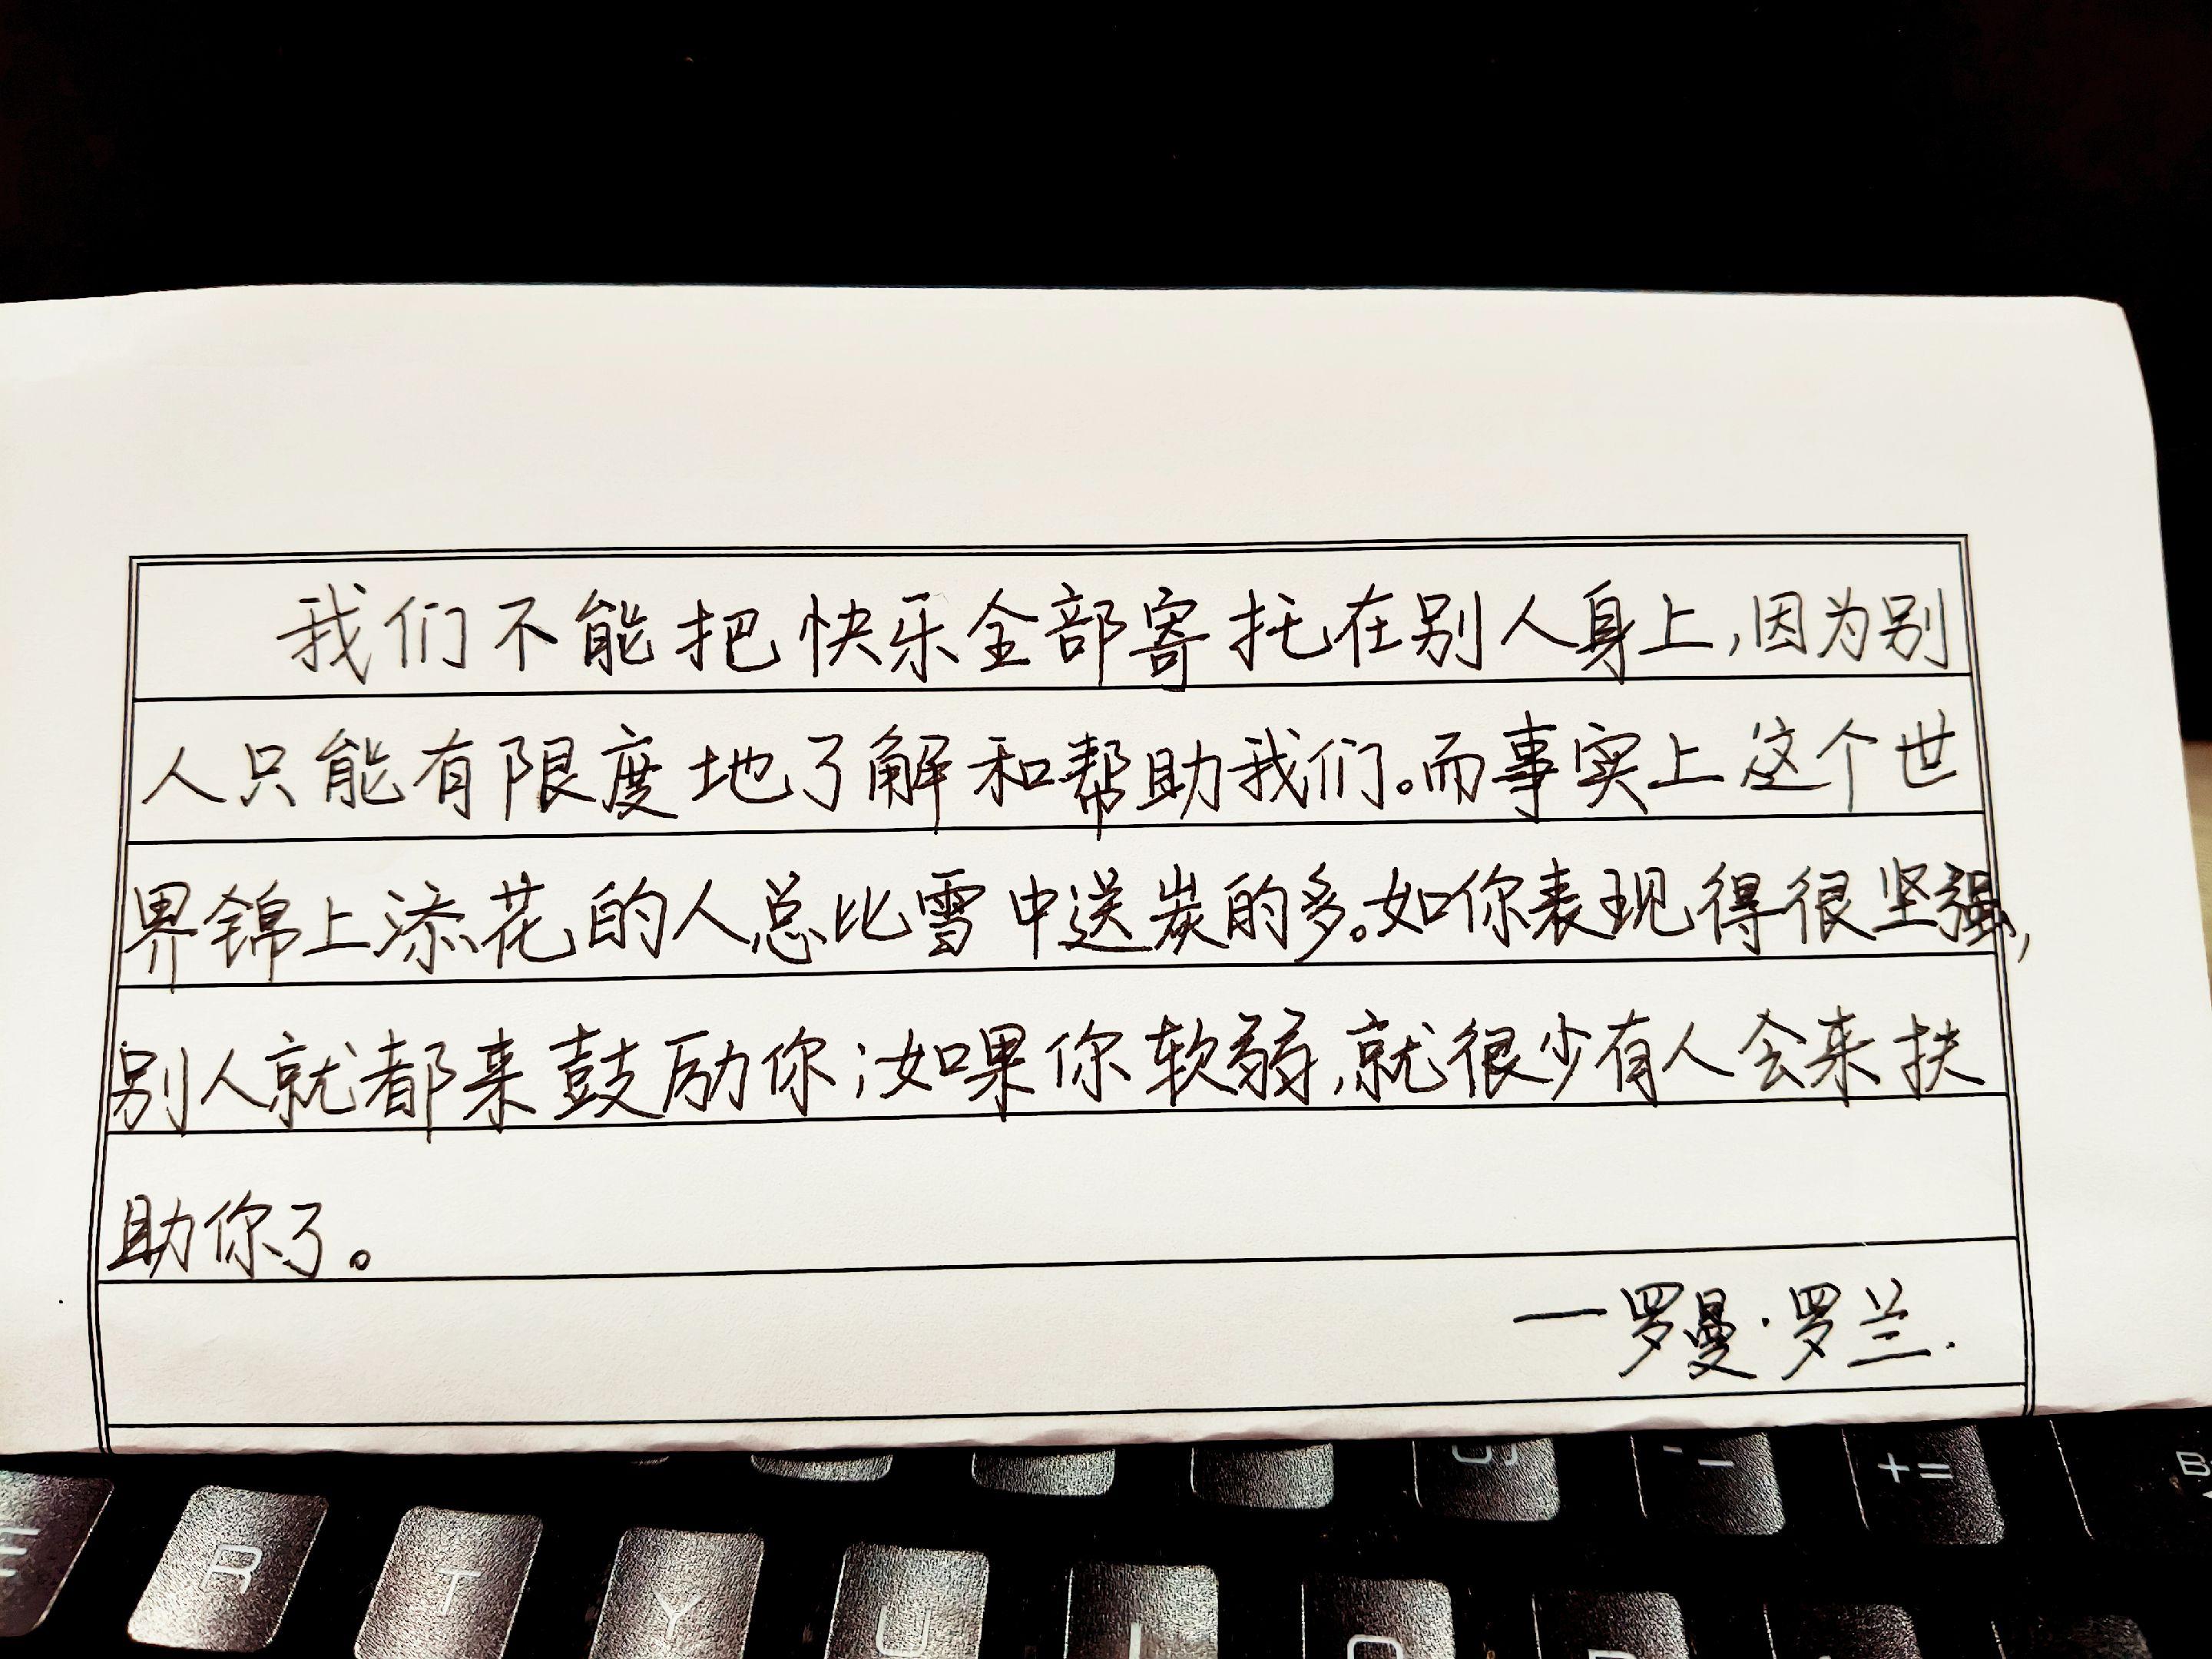 我们不能把快乐全部寄托在别人身上,因为别
人只能有限度地了解和帮助我们。而事实上这个世
界锦上添花的人总比雪中送炭的多。如你表现得很坚强,
别人就都来鼓励你;如果你软弱,就很少有人会来扶
助你了。
一罗曼·罗兰.
- _ + = B
R T Y U I O P